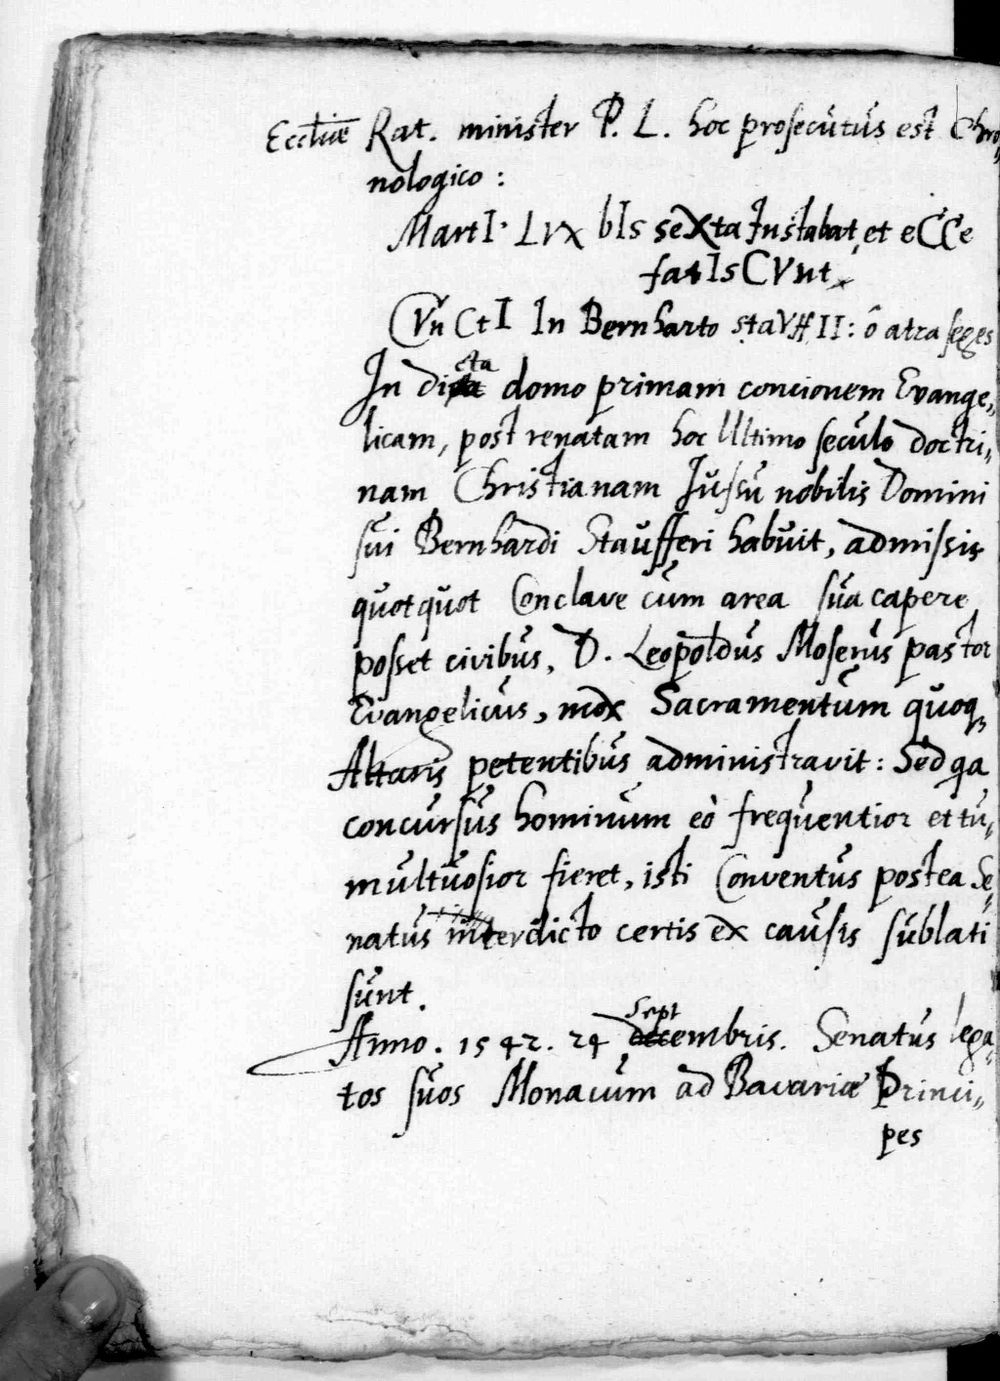 Eccliæ Rat. minister P. L. hoc prosecutus est Chro„
nologico :
MartI· LVX bIs seXta Instabat, et eCCe
fatIsCVnt
CVnCtI In Bernharto staVffII: ô atra seges
In dicta domo primam concionem Evange„
licam, post renatam hoc Ultimo seculo doctri„
nam Christianam Jussu nobilis Domini
sui Bernhardi Staufferi habuit, admissis
quotquot Conclave cum area sua capere
posset civibus, D. Leopoldus Moserus pastor
Evangelicus, mox Sacramentum quoq
Altaris petentibus administravit: Sed qa
concursus hominum eò frequentior et tu„
multuosior fieret, isti Conventus postea Se„
natus interdicto certis ex causis sublati
sunt.
Anno. 1542. 24 Septembris. Senatus lega„
tos suos Monacum ad Bavariæ Princi„
pes